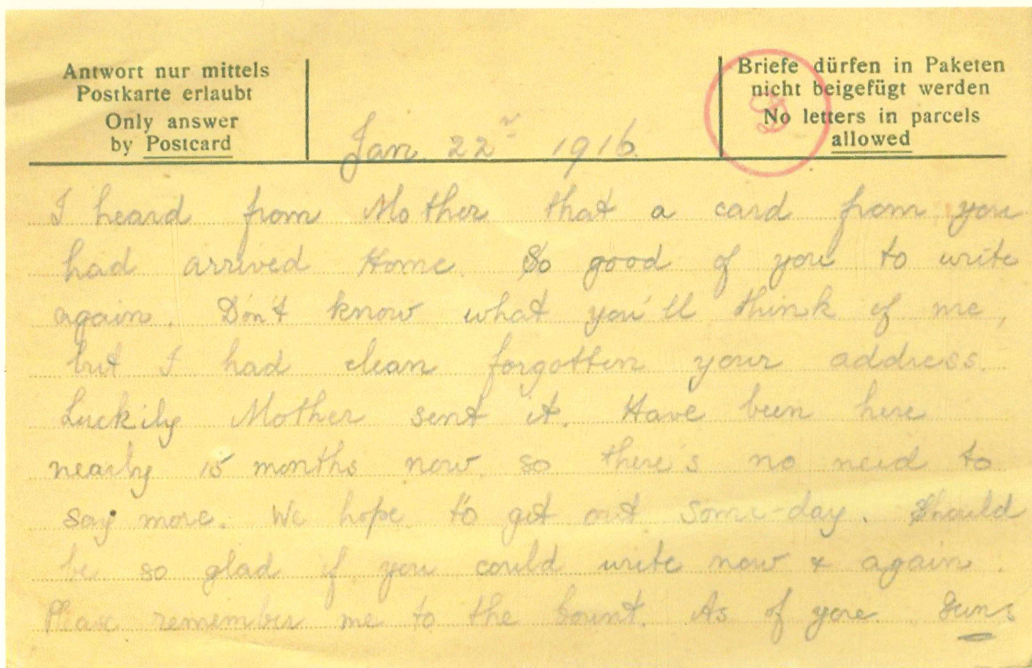 Antwort nur mittels
Postkarte erlaubt
Only answer
by Postcard
Briefe dürfen in Paketen
nicht beigefügt werden
No letters in parcels
allowed
Jan. 22 1916.
I heard from Mother that a card from you
had arrived Home. So good of you to write
again. Don't know what you'll think of me,
but I had clean forgotten your address.
Luckily Mother sent it. Have been here
nearly 15 months now, so there's no need to
say more. We hope to get out some-day. Should
be so glad if you could write now & again.
Please remember me to the Count. As of yore